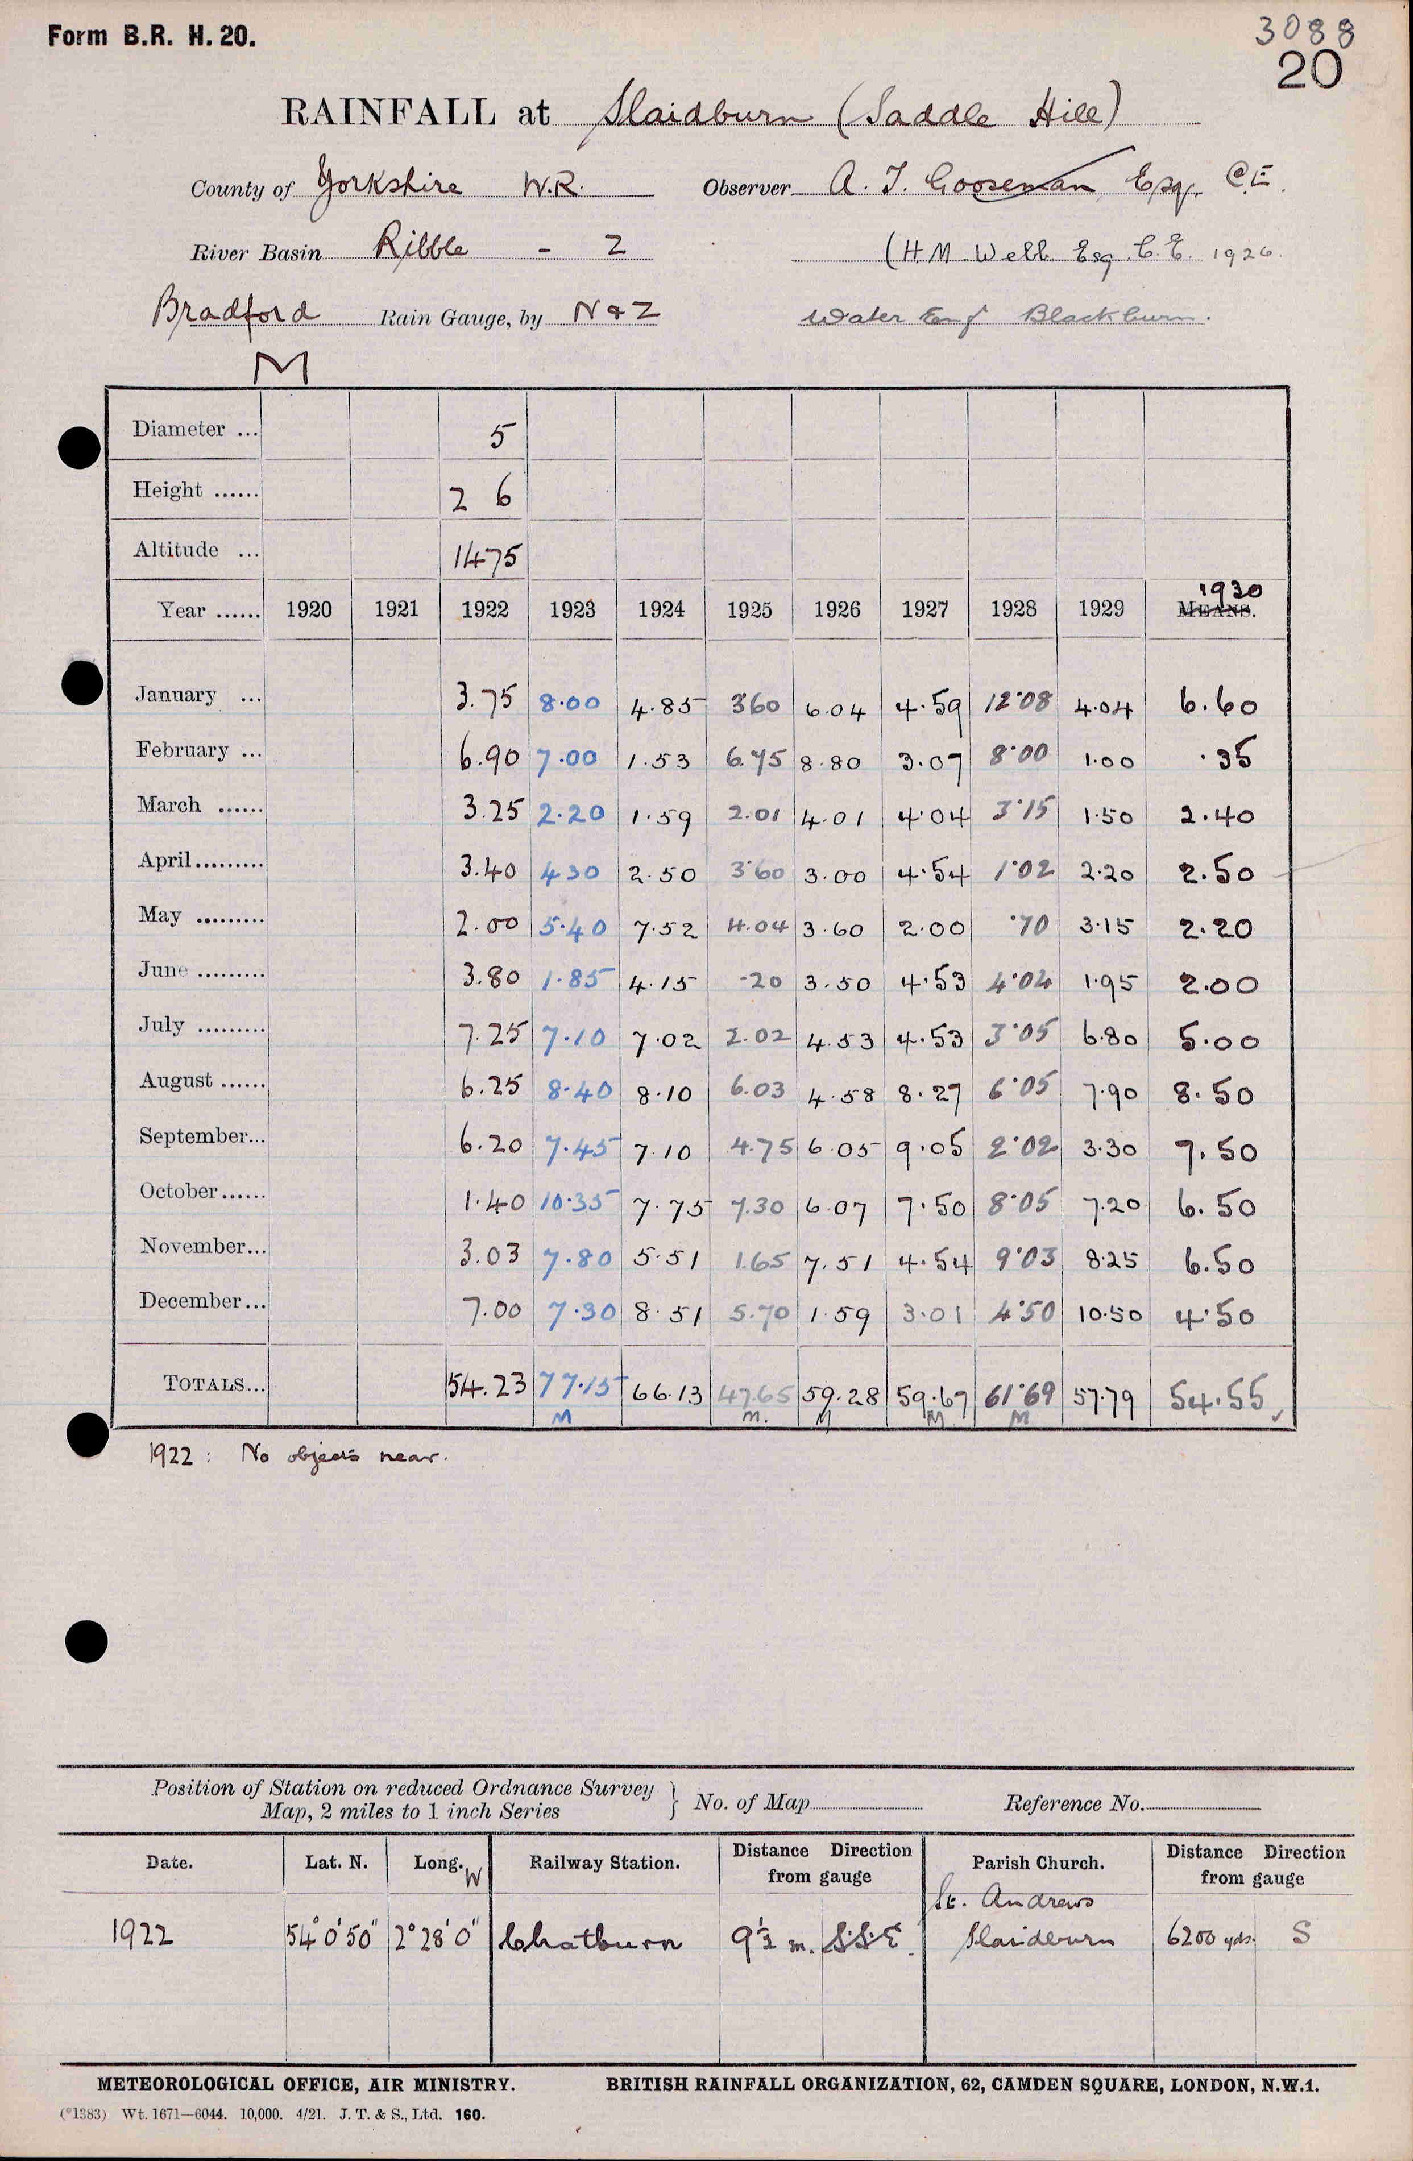 Form B.R. H. 20.
3088
20
RAINFALL at Slaidburn (Saddle Hill)
County of Yorkshire W.R. Observer A. J. Gooseman Esq. C.E.
River Basin Ribble - 2 (H M Webb. Esq. C.E. 1926.
Bradford Rain Gauge, by N & Z Water Eng Blackburn.
M
Diameter ... 5
Height ...... 2 6
Altitude ... 1475
1930
Year ...... 1920 1921 1922 1923 1924 1925 1926 1927 1928 1929 MEANS.
January ... 3.75 8.00 4.85 3.60 6.04 4.59 12.08 4.04 6.60
February ... 6.90 7.00 1.53 6.75 8.80 3.07 8.00 1.00 .35
March ...... 3.25 2.20 1.59 2.01 4.01 4.04 3.15 1.50 2.40
April......... 3.40 4 30 2.50 3.60 3.00 4.54 1.02 2.20 2.50
May ......... 2.00 5.40 7.52 4.04 3.60 2.00 .70 3.15 2.20
June ......... 3.80 1.85 4.15 .20 3.50 4.53 4.04 1.95 2.00
July ......... 7.25 7.10 7.02 2.02 4.53 4.53 3.05 6.80 5.00
August ...... 6.25 8.40 8.10 6.03 4.58 8.27 6.05 7.90 8.50
September... 6.20 7.45 7.10 4.75 6.05 9.05 2.02 3.30 7.50
October...... 1.40 10.35 7.75 7.30 6.07 7.50 8.05 7.20 6.50
November... 3.03 7.80 5.51 1.65 7.51 4.54 9.03 8.25 6.50
December... 7.00 7.30 8.51 5.70 1.59 3.01 4.50 10.50 4.50
TOTALS... 54.23 77.15 66.13 47.65 59.28 59.67 61.69 57.79 54.55 ✓
M m. M M M
1922 : No objects near.
Position of Station on reduced Ordnance Survey
Map, 2 miles to 1 inch Series } No. of Map Reference No.
Date. Lat. N. Long. W Railway Station. Distance Direction from gauge Parish Church. Distance Direction from gauge
St. Andrews
1922 54° 0' 50" 2° 28' 0" Chatburn 9½ m. S.S.E. Slaidburn 6200 yds. S
METEOROLOGICAL OFFICE, AIR MINISTRY. BRITISH RAINFALL ORGANIZATION, 62, CAMDEN SQUARE, LONDON, N.W.1.
(*1383) Wt. 1671—6044. 10,000. 4/21. J. T. & S., Ltd. 160.